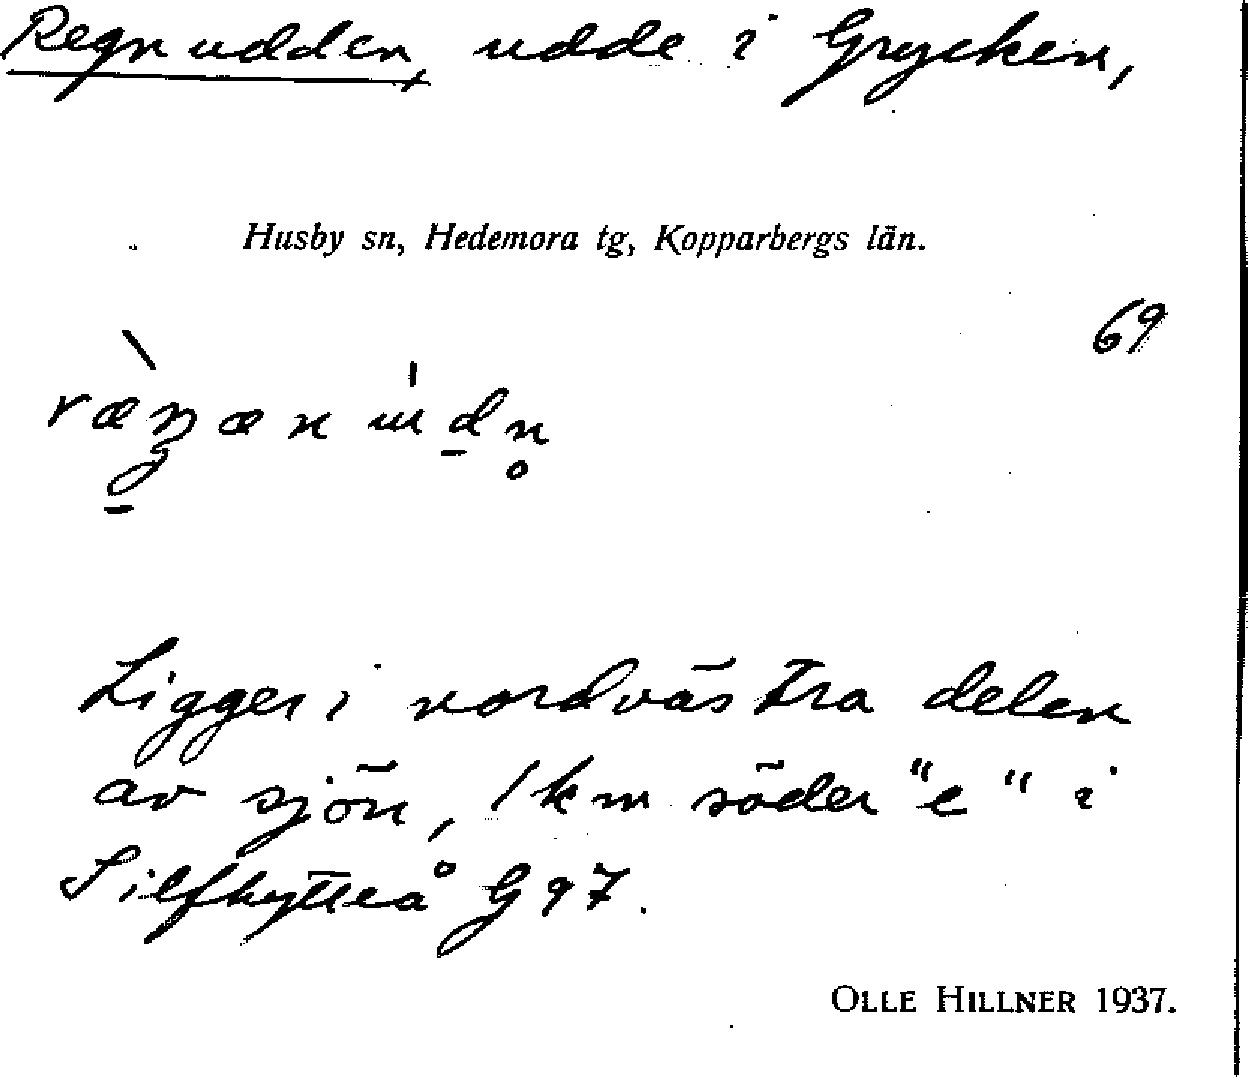 Regnudden, udde i Grycken,
Husby sn, Hedemora tg, Kopparbergs län.
69
Ligger i nordvästra delen
av sjön, 1 km söder "e" i
Silfhytteå G 97.
OLLE HILLNER 1937.